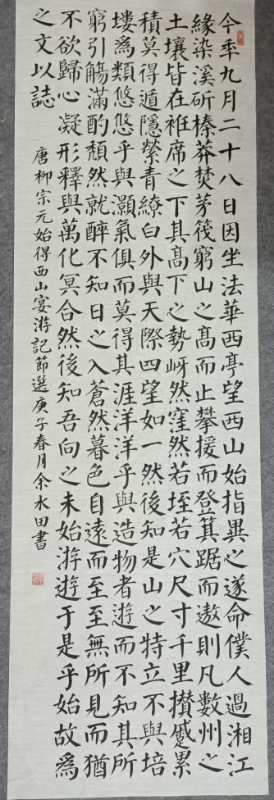 今秊九月二十八日因坐法華西亭望西山始指異之遂命僕人過湘江
緣染溪斫榛莽焚茅筏窮山之高而止攀援而登箕踞而遨則凡數州之
土壤皆在衽席之下其高下之勢岈然窪然若垤若穴尺寸千里攢蹙累
積莫得遁隱縈青繚白外與天際四望如一然後知是山之特立不與培
塿為類悠悠乎與灝氣俱而莫得其涯洋洋乎與造物者遊而不知其所
窮引觴滿酌頹然就醉不知日之入蒼然暮色自遠而至至無所見而猶
不欲歸心凝形釋與萬化冥合然後知吾向之未始游遊于是乎始故為
之文以誌
唐柳宗元始得西山宴游記節選庚子春月余水田書